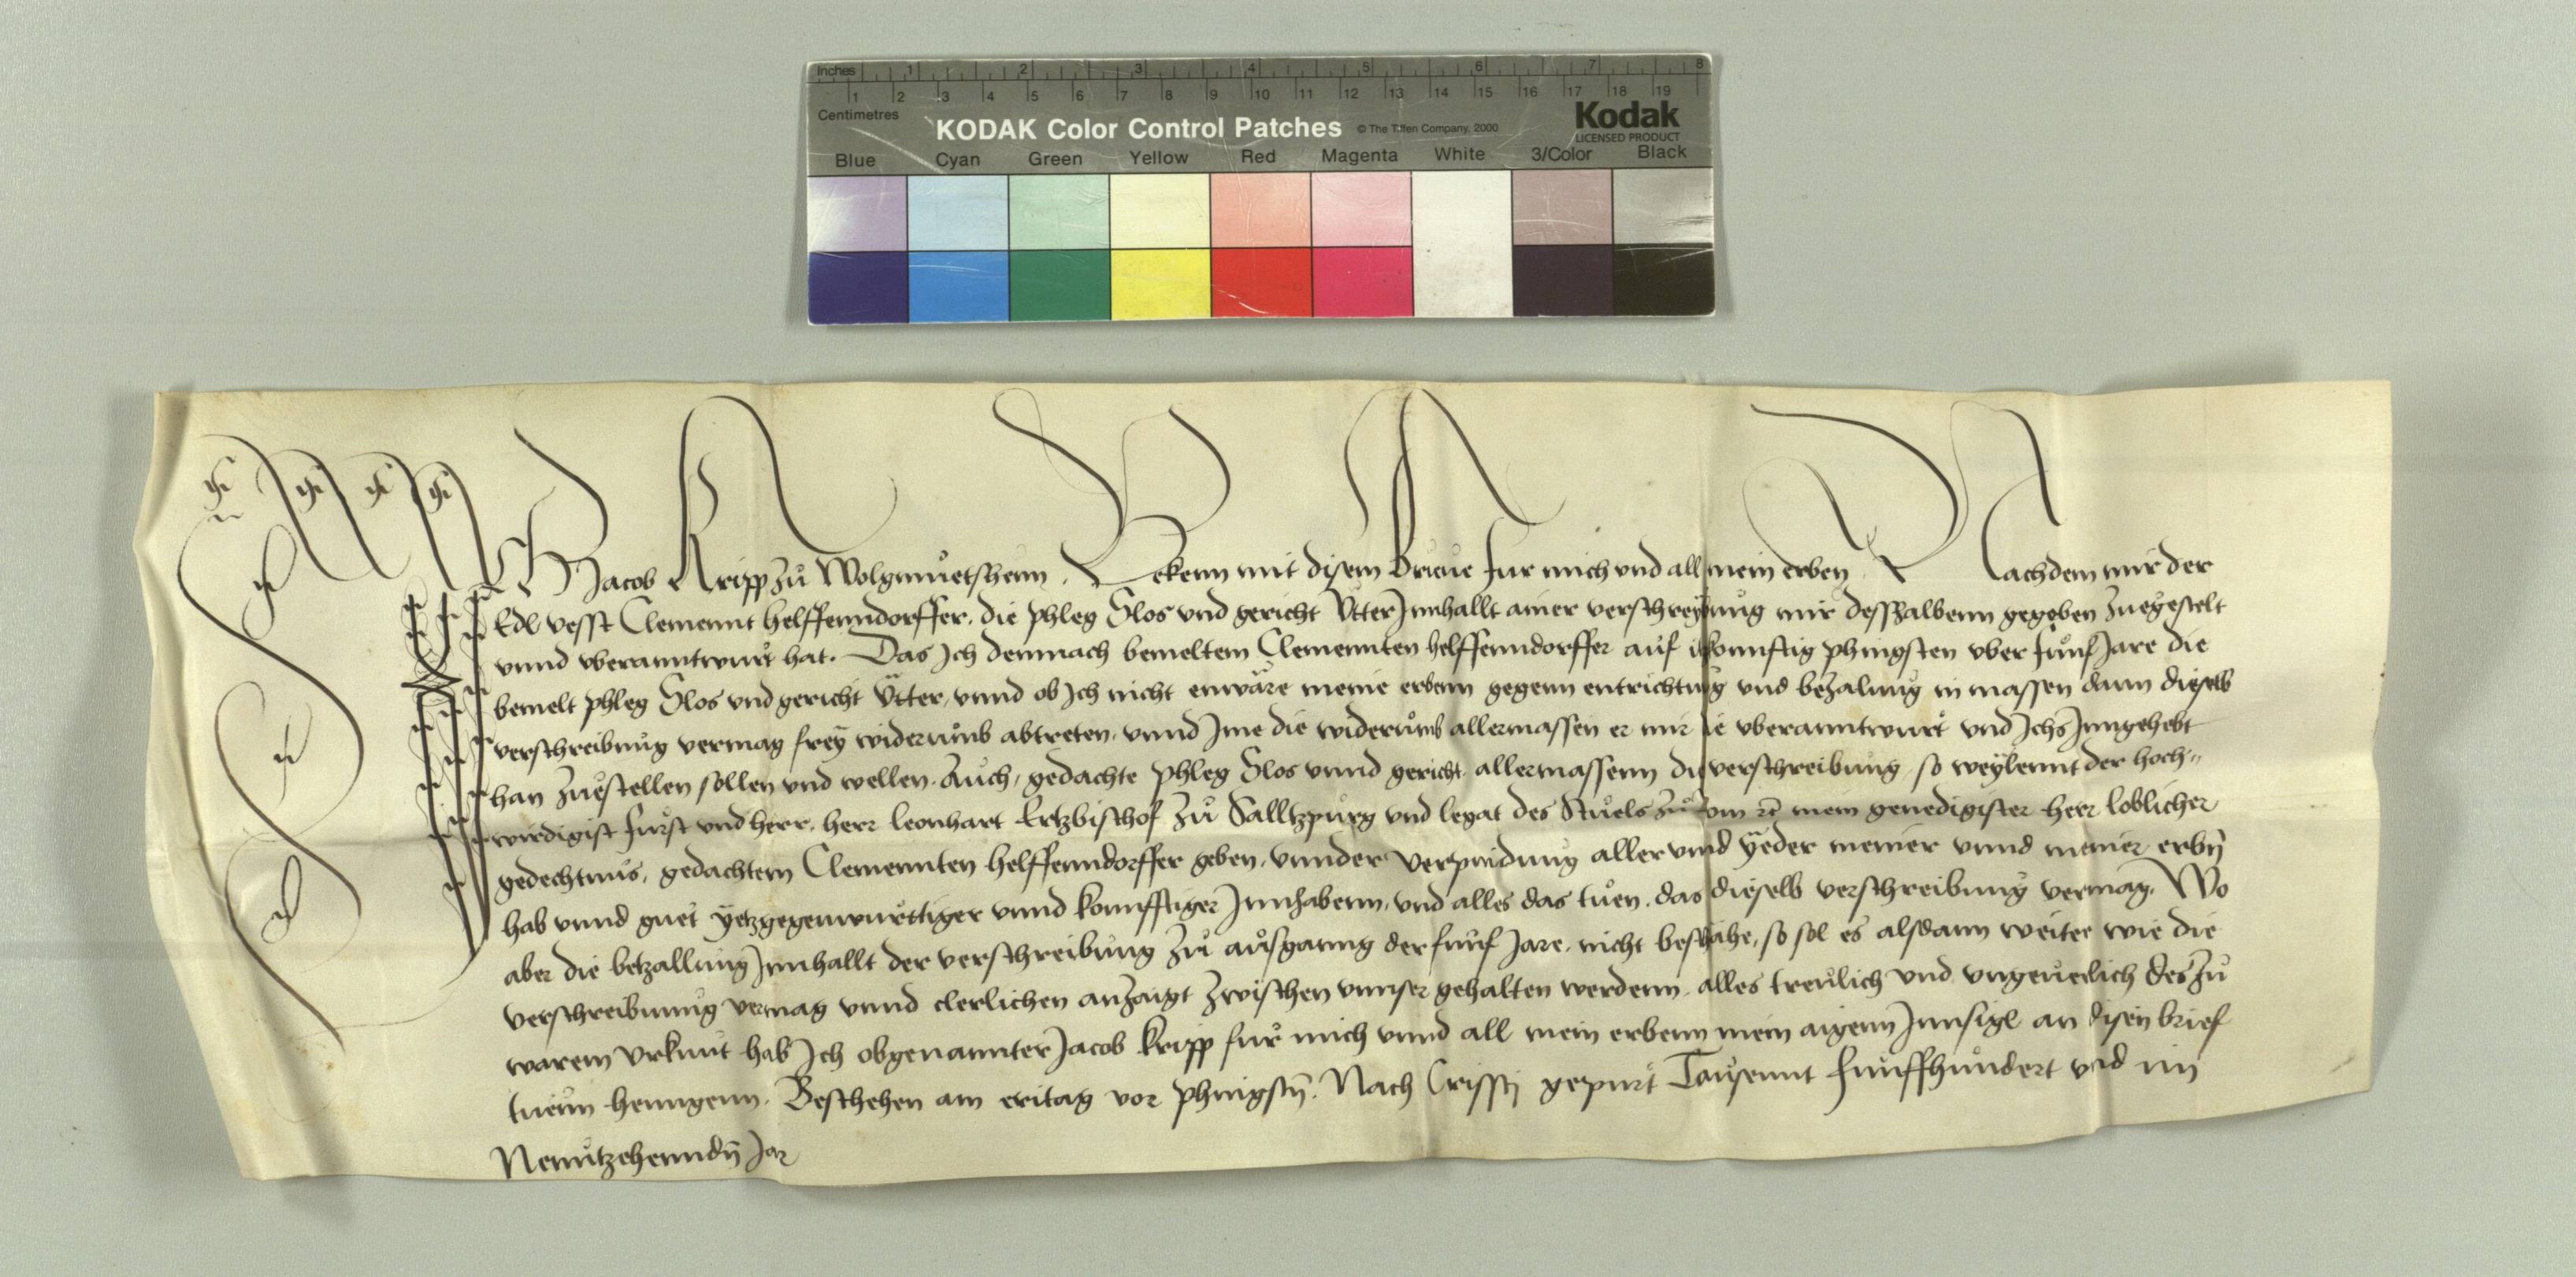 Inches 1 2 3 4 5 6 7 8
1 2 3 4 5 6 7 8 9 10 11 12 13 14 15 16 17 18 19
Centimetres
KODAK Color Control Patches © The Tiffen Company, 2000 Kodak
LICENSED PRODUCT
Blue Cyan Green Yellow Red Magenta White 3/Color Black
Ich Jacob Kripp zů Wolgmuetshenn. Bekenn mit disem brieue fur mich vnd all mein erben. Nachdem mir der
Edl vesst Clemennt helffenndorffer. die phleg Slos vnd gericht Ütter Innhallt ainer verschreybung mir desshalbenn gegeben zuegestelt
vnnd vberanntwurt hat. Das Ich demnach bemeltem Clemennten helffenndorffer auf konnftig phingsten vber funf Jare die
bemelt phleg Slos vnd gericht Ütter, vnnd ob Ich nicht enwäre meine erbenn gegenn entrichtung vnd bezalung in massen dann dieselb
verschreibung vermag frey widerumb abtreten. vnnd Ime die widerumb allermassen er mir sie vberanntwurt vnd Ichs Inngehebt
han zuestellen sollen vnd wellen. Auch, gedachte phleg Slos vnnd gericht. allermassenn die verschreibung so weylennt der hoch-
wirdigist furst vnd herr. herr leonhart Ertzbischof zů Salltzpurg vnd legat des Stuels zů Rom rc mein genedigister herr loblicher
gedechtnus. gedachtem Clemennten helffenndorffer geben. vnnder verpindung aller vnnd yeder meiner vnnd meiner erbn
hab vnnd guet yetzgegenwurttiger vnnd konnfftiger Innhabenn. vnd alles das tuen. das dieselb verschreibung vermag. Wo
aber die betzallung Innhallt der verschreibung zů ausganng der funf Jare. nicht beschähe, so sol es alsdann weiter wie die
verschreibung vermag vnnd clerlichen anzaigt zwischen vnnser gehalten werdenn. alles treulich vnd vngeuerlich des zů
warem vrkunt hab Ich obgenannter Jacob kripp fur mich vnnd all mein erbenn mein aigenn Innsigl an disen brief
tuenn henngenn. Beschehen am eritag vor phingstn. Nach Cristj gepurt Tausennt funffhundert vnd im
Newntzehenndn Jar